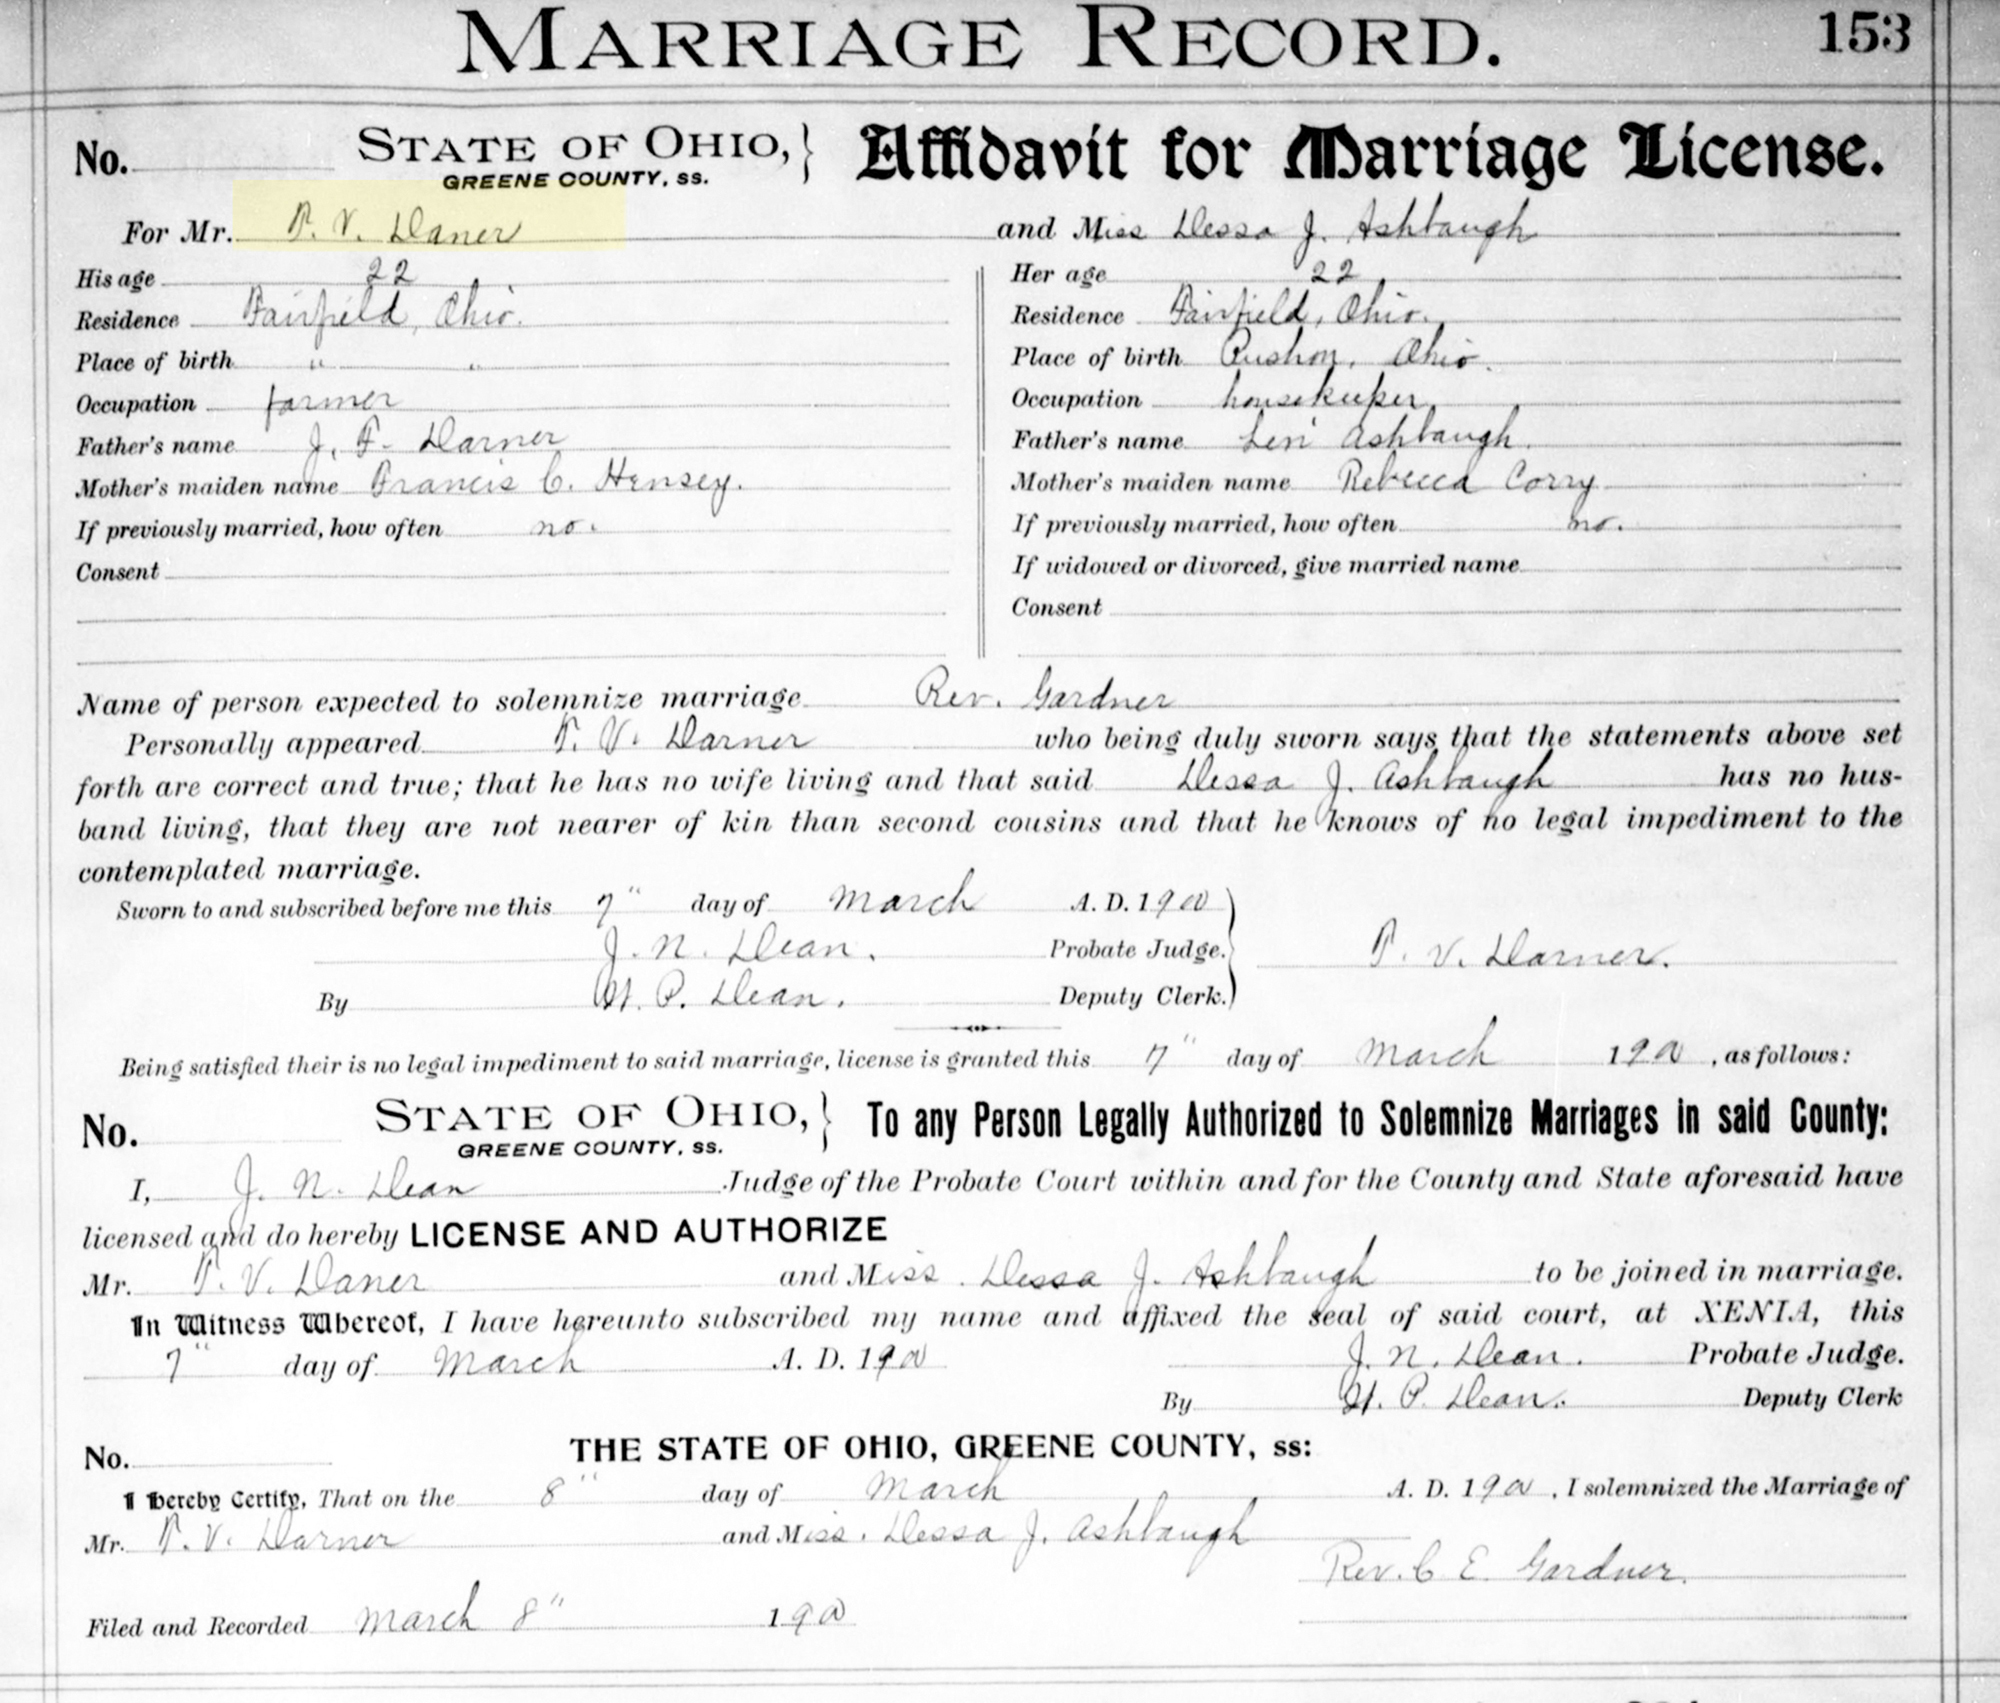 MARRIAGE RECORD. 153
No. STATE OF OHIO, } Affidavit for Marriage License.
GREENE COUNTY, ss.
For Mr. T. V. Daner and Miss Dessa J. Ashbaugh
His age 22 Her age 22
Residence Fairfield, Ohio. Residence Fairfield, Ohio.
Place of birth " " Place of birth Ohio.
Occupation farmer Occupation housekeeper
Father's name J. F. Darner Father's name Levi Ashbaugh.
Mother's maiden name Francis C. Hensey. Mother's maiden name Rebecca Corry
If previously married, how often no. If previously married, how often no.
Consent If widowed or divorced, give married name
Consent
Name of person expected to solemnize marriage Rev. Gardner
Personally appeared T. V. Darner who being duly sworn says that the statements above set
forth are correct and true; that he has no wife living and that said Dessa J. Ashbaugh has no hus-
band living, that they are not nearer of kin than second cousins and that he knows of no legal impediment to the
contemplated marriage.
Sworn to and subscribed before me this 7" day of March A. D. 1900
J. N. Dean. Probate Judge. T. V. Darner.
By P. Dean. Deputy Clerk.
Being satisfied their is no legal impediment to said marriage, license is granted this 7" day of March 1900, as follows:
No. STATE OF OHIO, } To any Person Legally Authorized to Solemnize Marriages in said County:
GREENE COUNTY, ss.
I, J. N. Dean Judge of the Probate Court within and for the County and State aforesaid have
licensed and do hereby LICENSE AND AUTHORIZE
Mr. T. V. Daner and Miss. Dessa J. Ashbaugh to be joined in marriage.
In Witness Whereof, I have hereunto subscribed my name and affixed the seal of said court, at XENIA, this
7" day of March A. D. 1900 J. N. Dean. Probate Judge.
By P. Dean. Deputy Clerk
No. THE STATE OF OHIO, GREENE COUNTY, ss:
I hereby Certify, That on the 8" day of March A. D. 1900, I solemnized the Marriage of
Mr. T. V. Darner and Miss. Dessa J. Ashbaugh
Rev. C. E. Gardner.
Filed and Recorded March 8" 1900